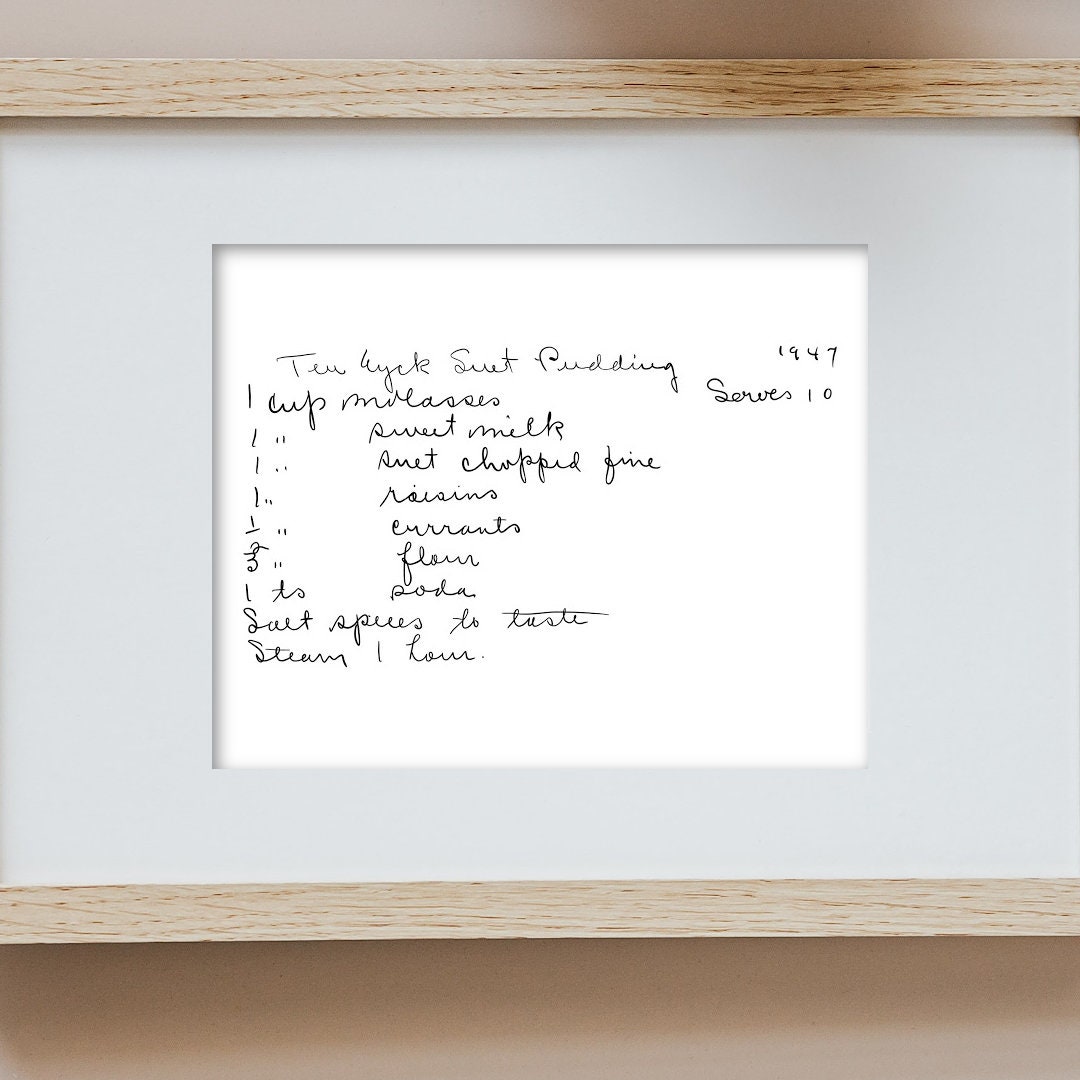 Ten Eyck Suet Pudding 1947
1 cup molasses Serves 10
1 " sweet milk
1 " suet chopped fine
1 " raisins
1/2 " currants
3 " flour
1 ts soda
Salt spices to taste
Steam 1 hour.